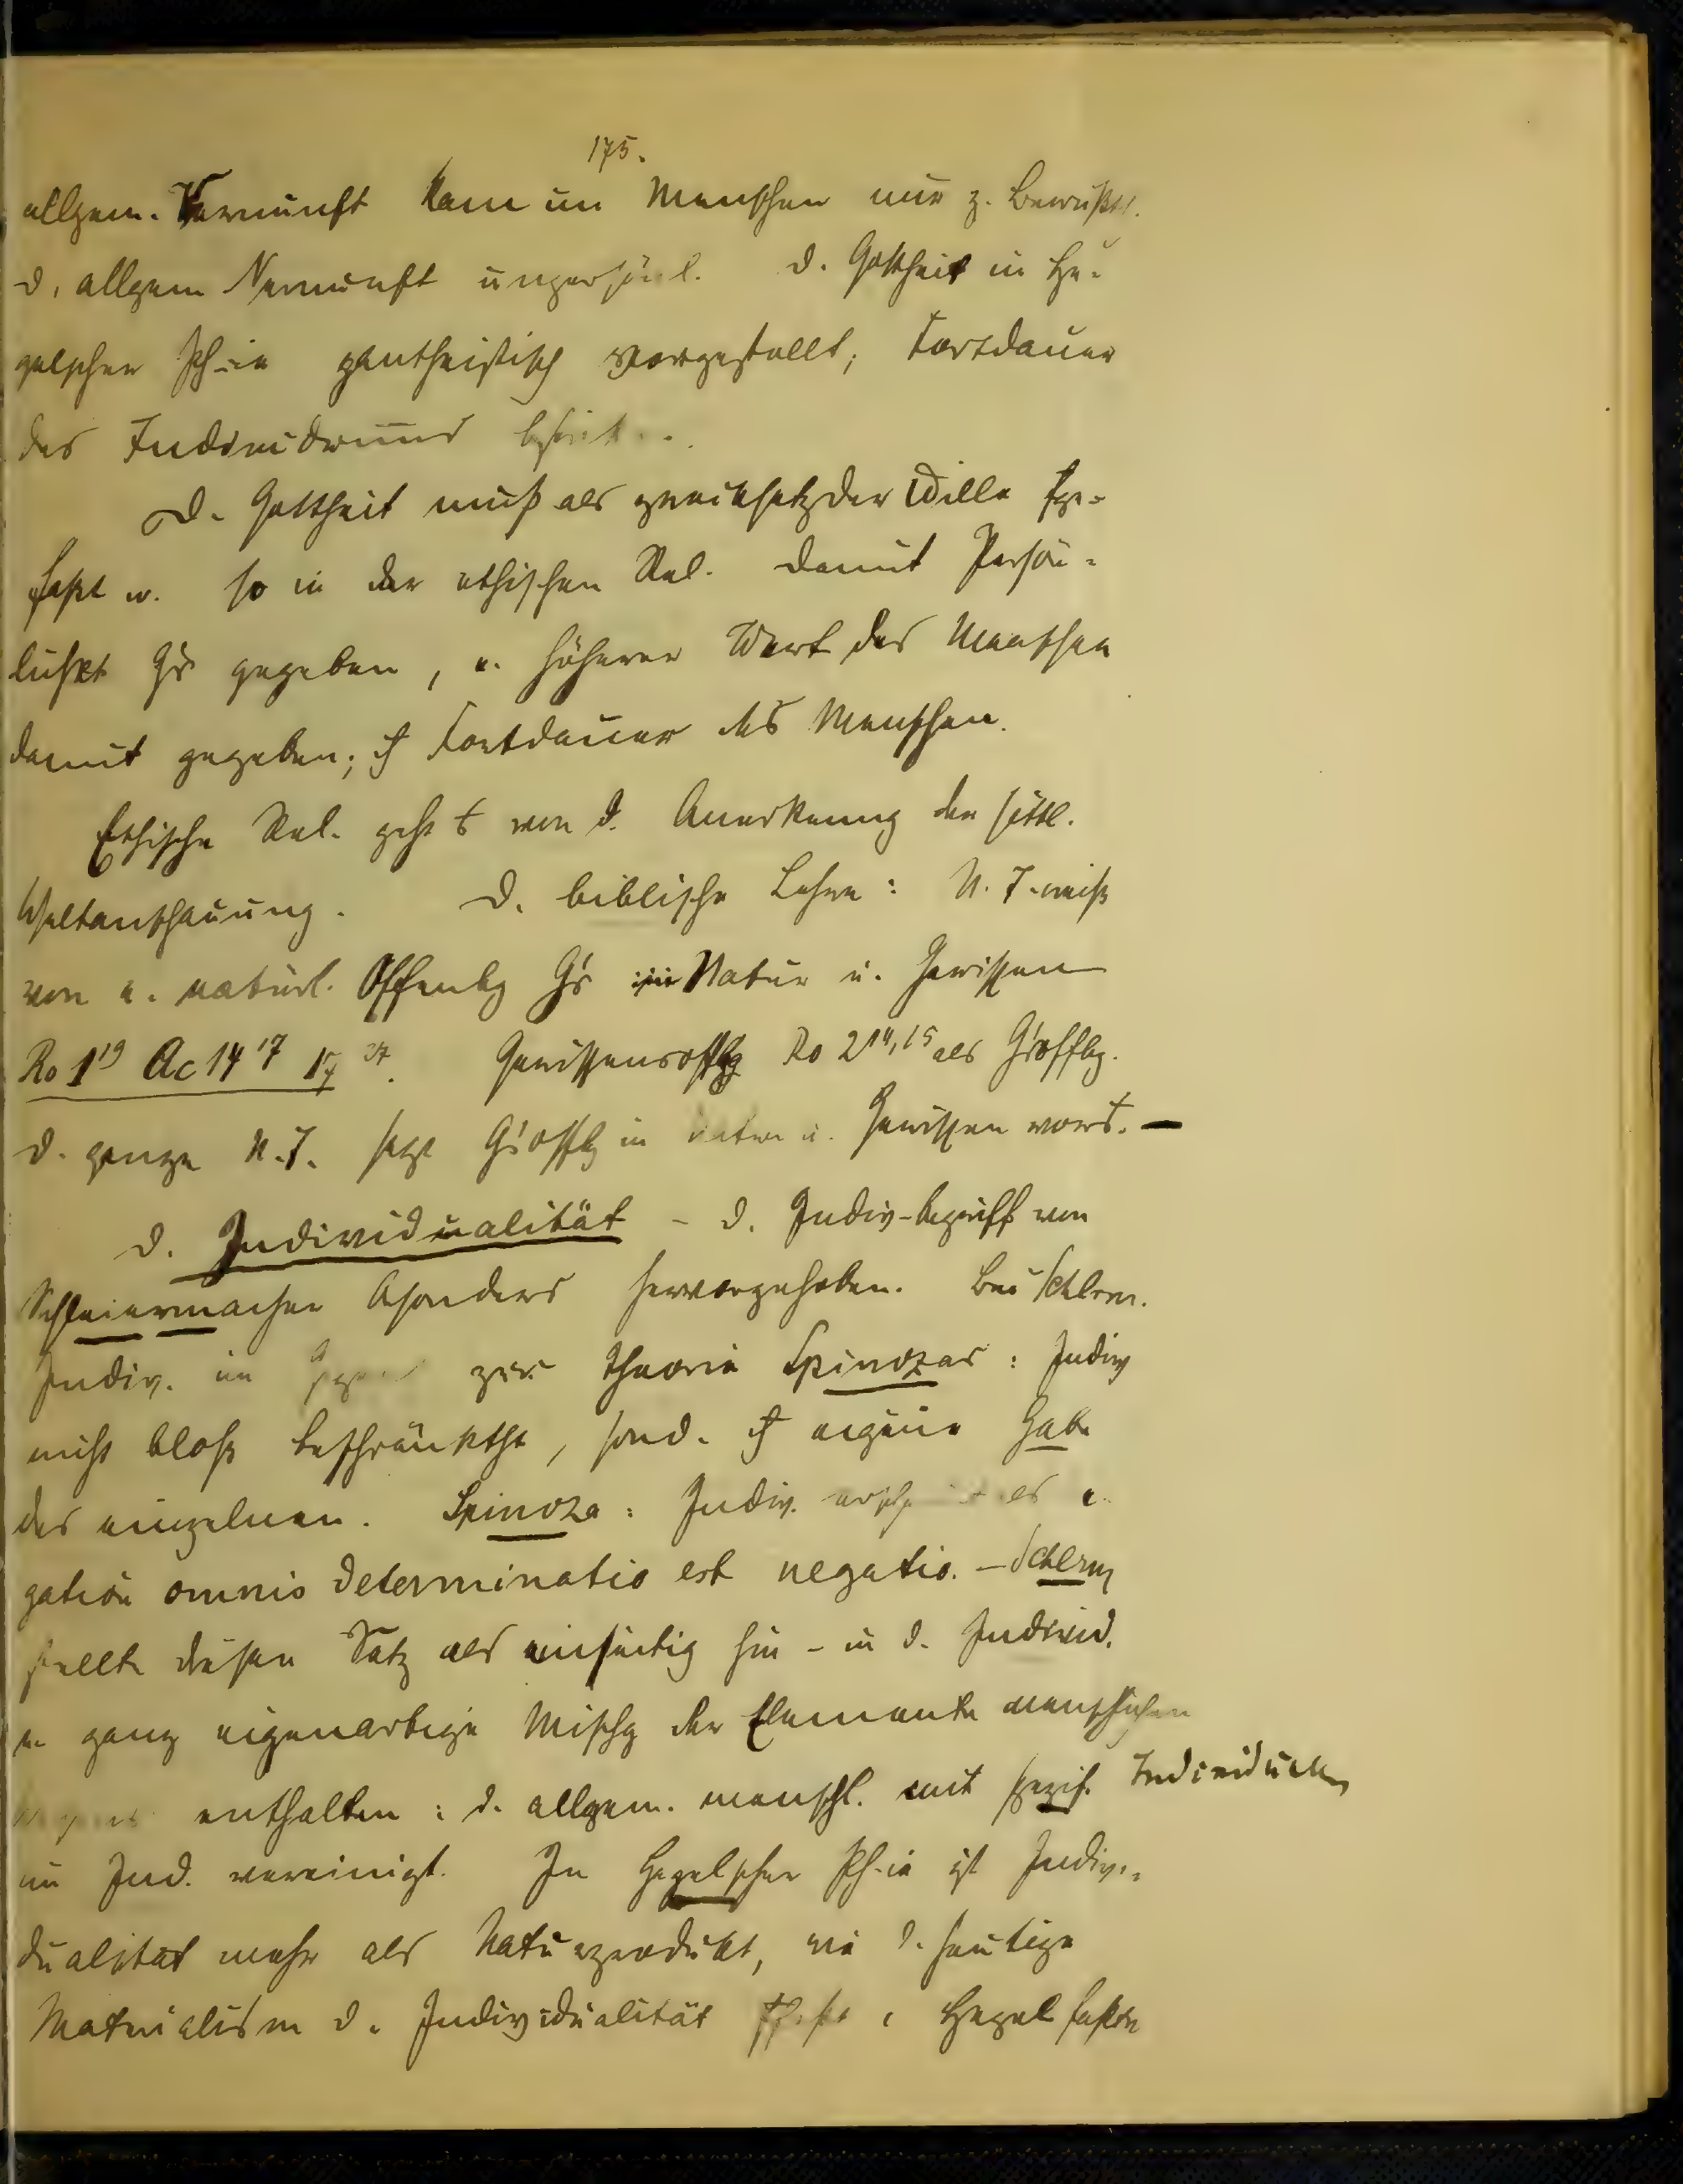 175.
allgem. Vernunft kam im Menschen nur z. Bewußts.
d. allgem Vernunft unpersönl. d. Gottheit in He-
gelscher Ph-ie pantheistisch vorgestellt; Fortdauer
des Individuums
D. Gottheit muß als zwecksetzder Wille
faßt w. so in der ethischen Rel. damit Persön-
lichkt Gs gegeben, e. höherer Wert des Menschen
damit gegeben; Fortdauer des Menschen.
Ethische Rel. geht von d. Anerkenng der sittl.
Weltanschauung. D. biblische Lehre: N. T. weiß
von e. natürl. Offenbg Gs in Natur u. Gewissen
Ro 1 19 Ac 14 17 17 27. Gewissensoffbg Ro 2 14,15 als Gsoffbg.
D. ganze N.T. setzt Gsoffbg in Natur u. Gewissen –
D. Individualität – d. Indiv-begriff von
Schleiermacher bsonders hervorgehoben. Bei Schlerm.
Indiv. im zur Theorie Spinozas: Indiv
nicht bloß beschränktht, sond. eigene Gabe
des einzelnen. Spinoza: Indiv. e.
gation omnis determinatio est negatio. – Schlerm
stellte diesen Satz als einseitig hin – in d. Individ.
e. ganz eigenartige Mischg der Elemente menschlichen
enthalten: d. allgem. menschl. mit spezif. Individuellen
im Ind. vereinigt. In Hegelscher Ph-ie ist Indivi-
dualität mehr als Naturprodukt, wie d. heutige
Materialism d. Individualität Hegel faßte